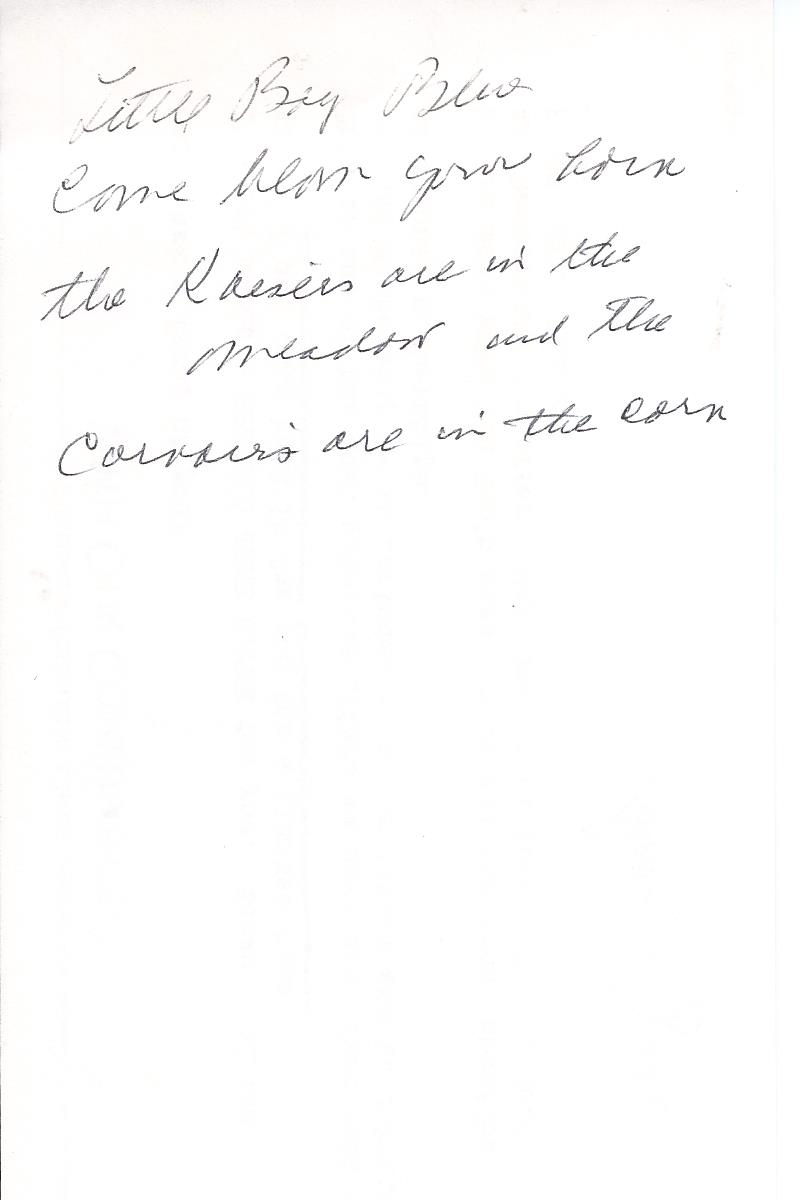 Little Boy Blue
Come blow your horn
the Kaesers are in the
meadow and the
Corvairs are in the corn